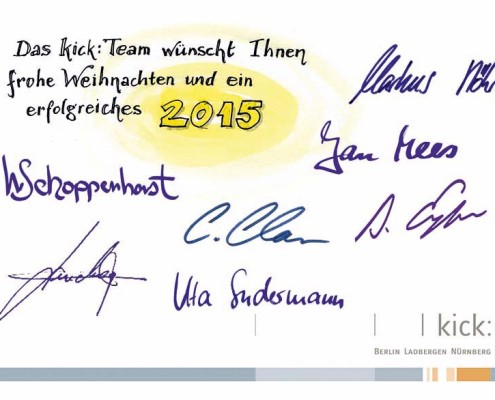 Das kick: Team wünscht Ihnen
frohe Weihnachten und ein
erfolgreiches 2015
Markus
Jan Mees
WSchoppenhorst
C. Clan
Uta Sudermann
kick:
BERLIN LADBERGEN NÜRNBERG